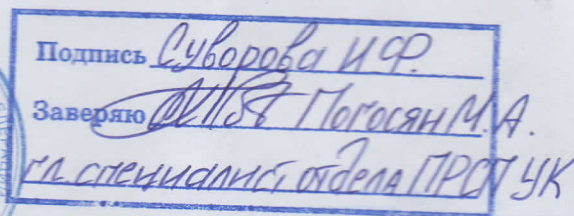 Подпись Суворова И.Ф.
Заверяю Погосян М.А.
гл. специалист отдела ПРСП УК